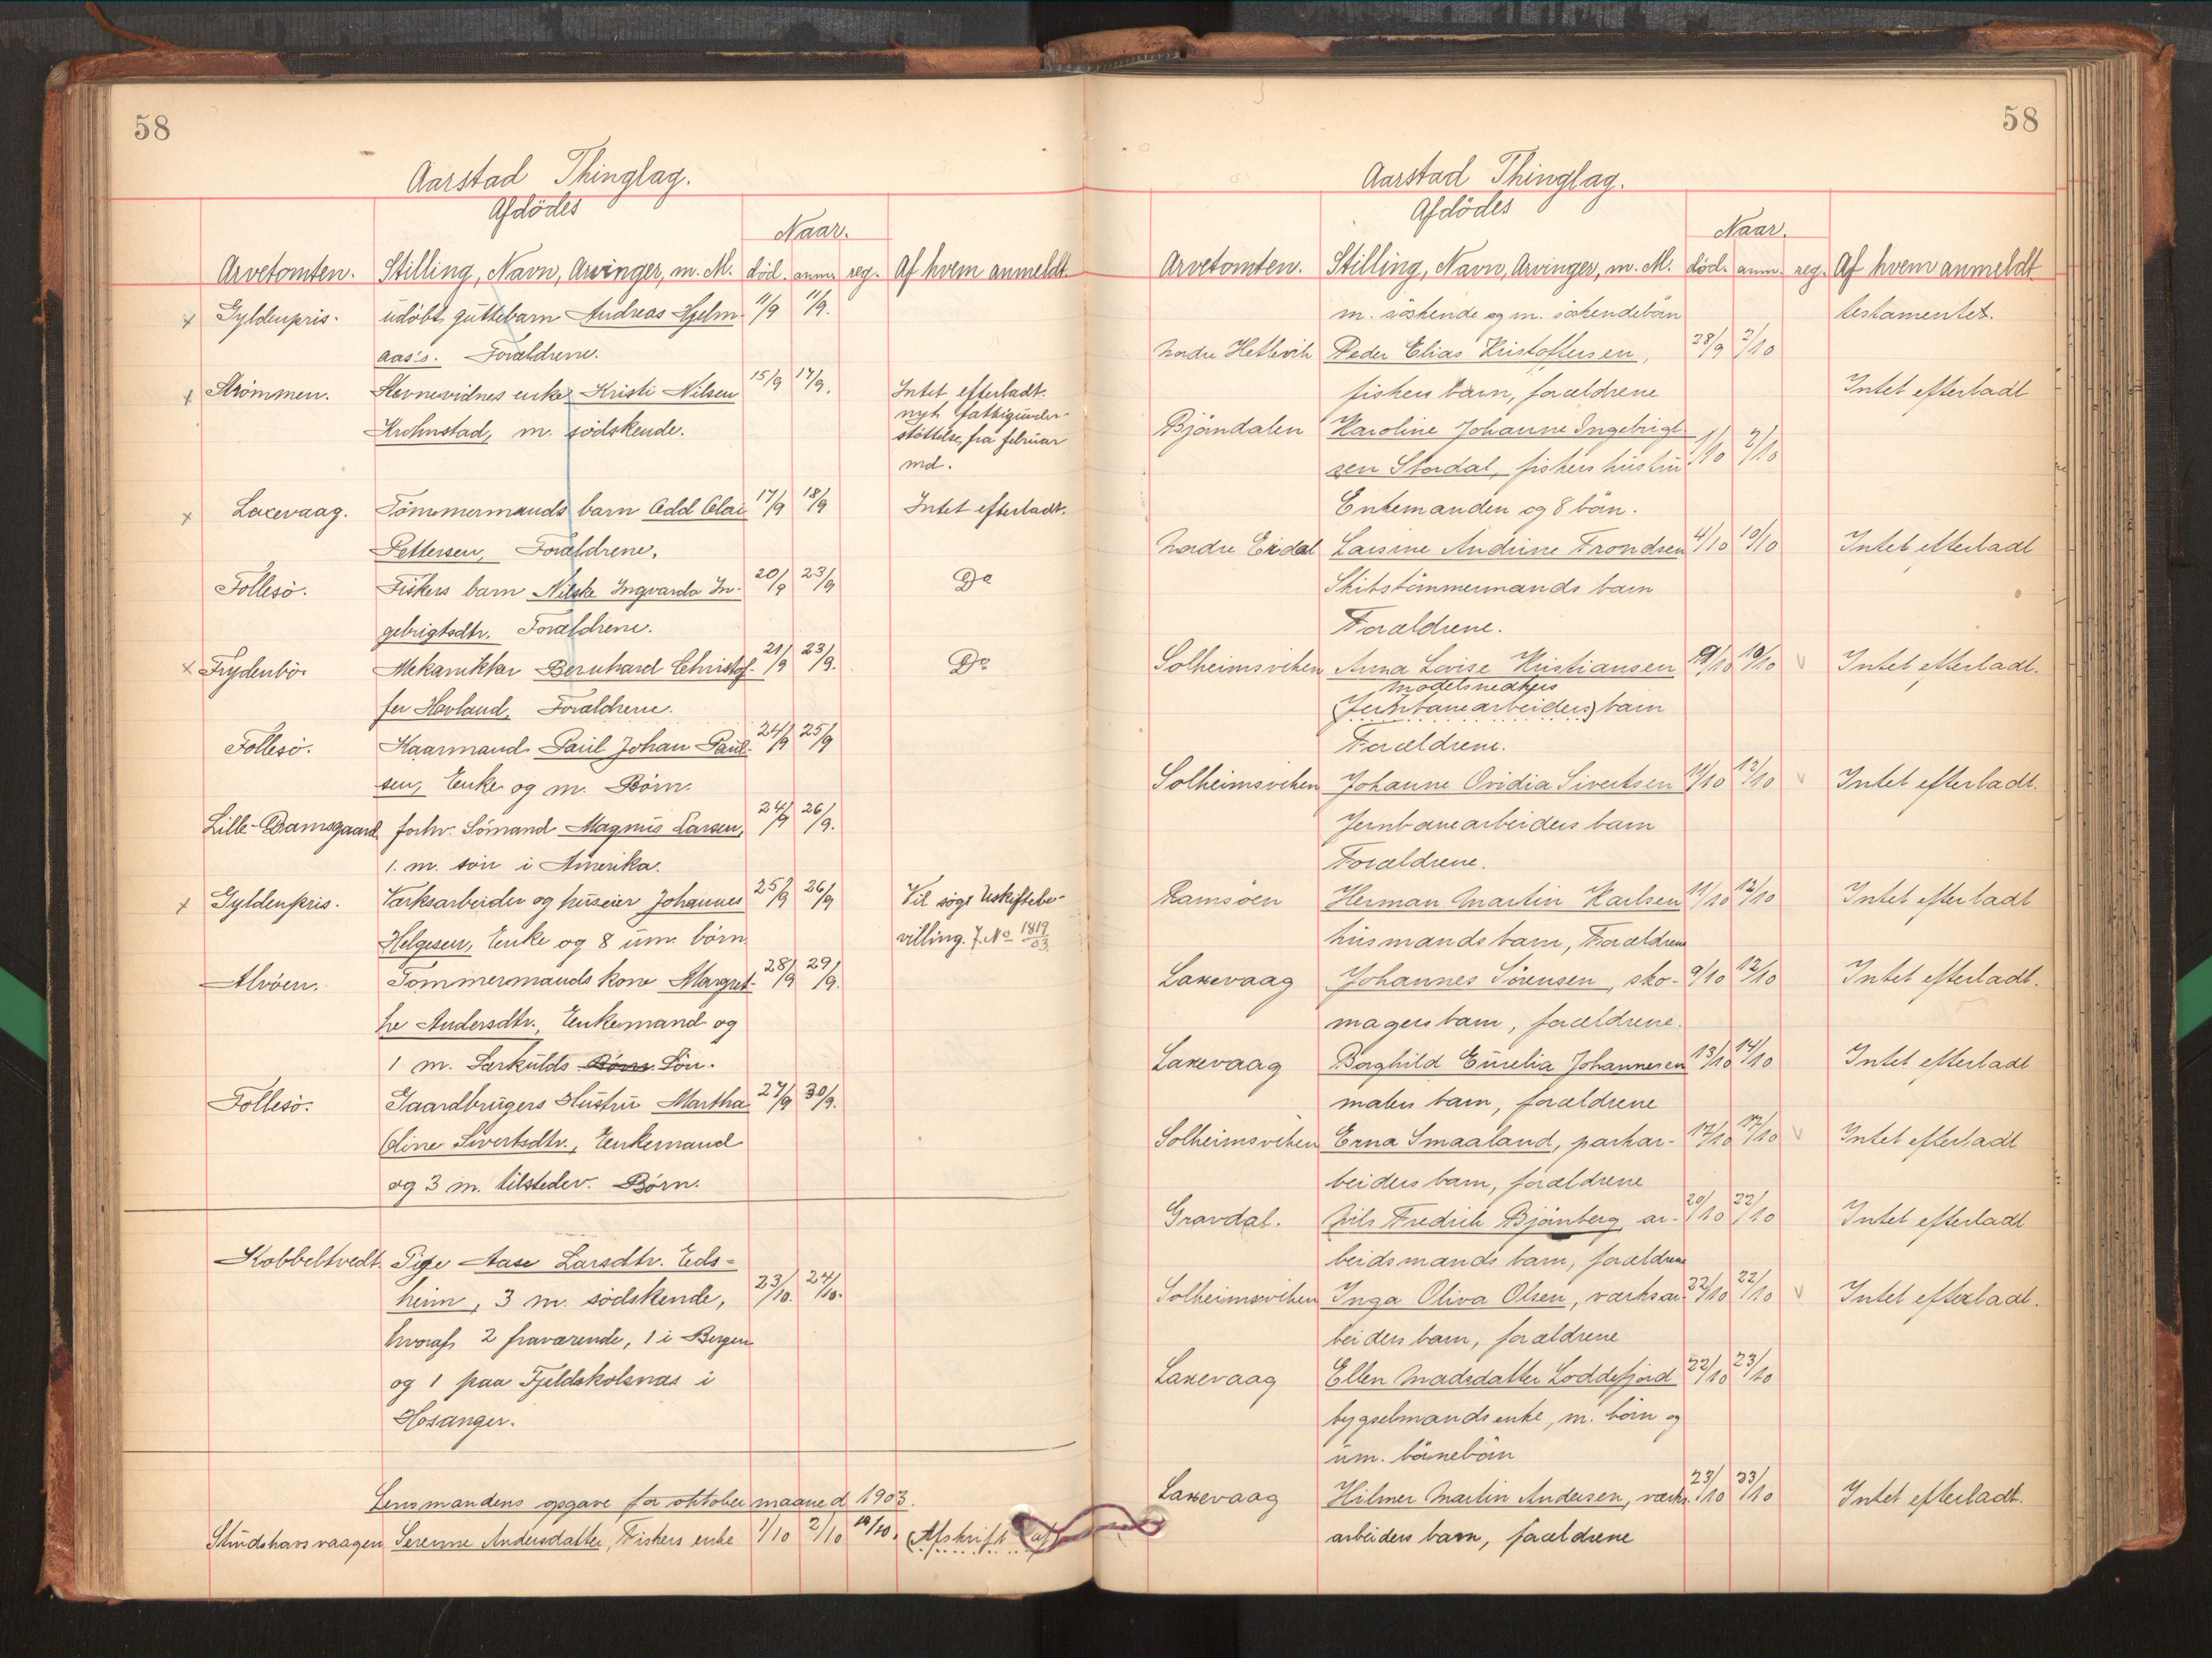 58
Aarstad Thinglag.
Afdödes
Naar.
Arvetomten. Stilling, Navn, Arvinger, m. M. död. anm. reg. Af hvem anmeldt.
x Gyldenpris. udöbt guttebarn Andreas Hjelm- 11/9 11/9.
aas's. Forældrene.
x Strömmen. Stevnevidnes enke Kristi Nilsen 15/9 17/9. Intet efterladt.
nyt fattigunder-
Krohnstad, m. södskende. støttelse, fra februar
md.
x Laxevaag. Tömmermands barn Odd Olai 17/9 18/9 Intet efterladt.
Pettersen, Forældrene.
Follesö. Fiskers barn Nilske Ingvarda In- 20/9 23/9 Do
gebrigtsdtr. Forældrene.
x Frydenbö. Mekanikker Bernhard Christof- 21/9 23/9. Do
fer Havland, Forældrene.
Follesö. Kaarmand Paul Johan Paul- 24/9 25/9
sen, Enke og m. Börn.
Lille-Dramsgaard forhv. Sömand Magnus Larsen, 24/9 26/9.
1. m. sön i Amerika.
x Gyldenpris. Værksarbeider og huseier Johannes 25/9 26/9 Vil søge Uskiftebe-
Helgesen, Enke og 8 um. börn. villing. J. No 1819/03.
Alvöen. Tömmermands kone Margret- 28/9 29/9.
he Andersdtr., Enkemand og
1 m. Særkulds Börn. Sön.
Follesö. Gaardbrugers Hustru Martha 27/9 30/9.
Oline Sivertsdtr., Enkemand
og 3 m. tilstedev. Börn.
Kobbeltvedt. Pige Aase Larsdtr. Eds-
heim, 3 m. södskende, 23/10. 24/10.
hvoraf 2 fraværende, 1 i Bergen
og 1 paa Fjeldskolsnæs i
Hosanger.
Lensmandens opgave for oktober maaned 1903.
Studshavsvaagen Serenne Andersdatter, Fiskers enke 1/10 2/10 14/10. (Afskrift af
58
Aarstad Thinglag.
Afdödes
Naar.
Arvetomten. Stilling, Navn, Arvinger, m. M. död. anm. reg. Af hvem anmeldt
m. söskende og m. söskendebörn testamentet.
Nordre Hetlevik Peder Elias Kristoffersen, 28/9 2/10
fiskers barn, forældrene Intet efterladt
Bjöndalen Karoline Johanne Ingebrigt-
sen Stordal, fiskers hustru 1/10 2/10
Enkemanden og 8 börn.
Nordre Eidal Larsine Andrine Trondsen 4/10 10/10 Intet efterladt
Skibstömmermands barn
Forældrene.
Solheimsviken Anna Lovise Kristiansen 10/10 10/10 v Intet efterladt.
modelsnedkers
(Jernbanearbeiders) barn
Forældrene.
Solheimsviken Johanne Ovidia Sivertsen 11/10 12/10 v Intet efterladt.
Jernbanearbeiders barn
Forældrene.
Ramsöen Herman Martin Karlsen 11/10 12/10 Intet efterladt
husmands barn, Forældrene
Laxevaag Johannes Sörensen, sko- 9/10 12/10 Intet efterladt.
magers barn, forældrene.
Laxevaag Borghild Emelia Johannesen 13/10 14/10 Intet efterladt
malers barn, forældrene
Solheimsviken Erna Smaaland, parkar- 17/10 17/10 v Intet efterladt
beiders barn, forældrene
Gravdal. Nils Fredrik Björnberg ar- 20/10 22/10 Intet efterladt
beidsmands barn, forældrene
Solheimsviken Inga Oliva Olsen, værksar- 22/10 22/10 v Intet efterladt.
beiders barn, forældrene
Laxevaag Ellen Madsdatter Loddefjord 22/10 23/10
bygselmands enke, m. börn og
um. börnebörn
Laxevaag Hilmer Martin Andersen, værks- 23/10 23/10 Intet efterladt.
arbeiders barn, forældrene